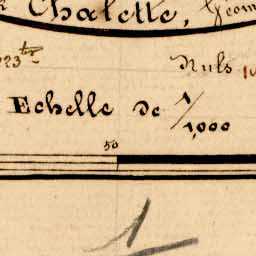 Chalette, Géom
Nuls
Echelle de 1/1,000
50
1